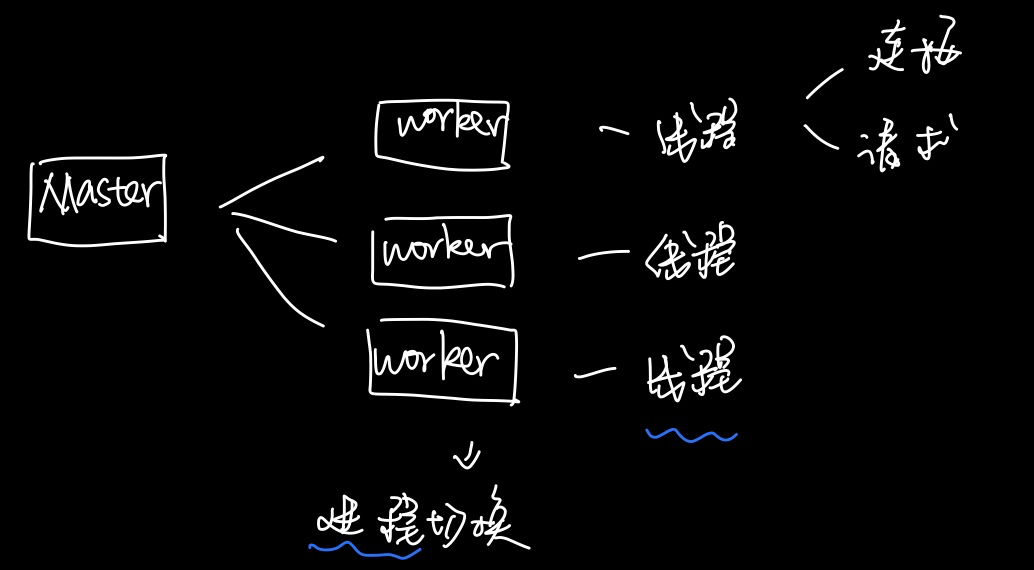 Master
worker
线程
连接
请求
worker
线程
worker
线程
进程切换